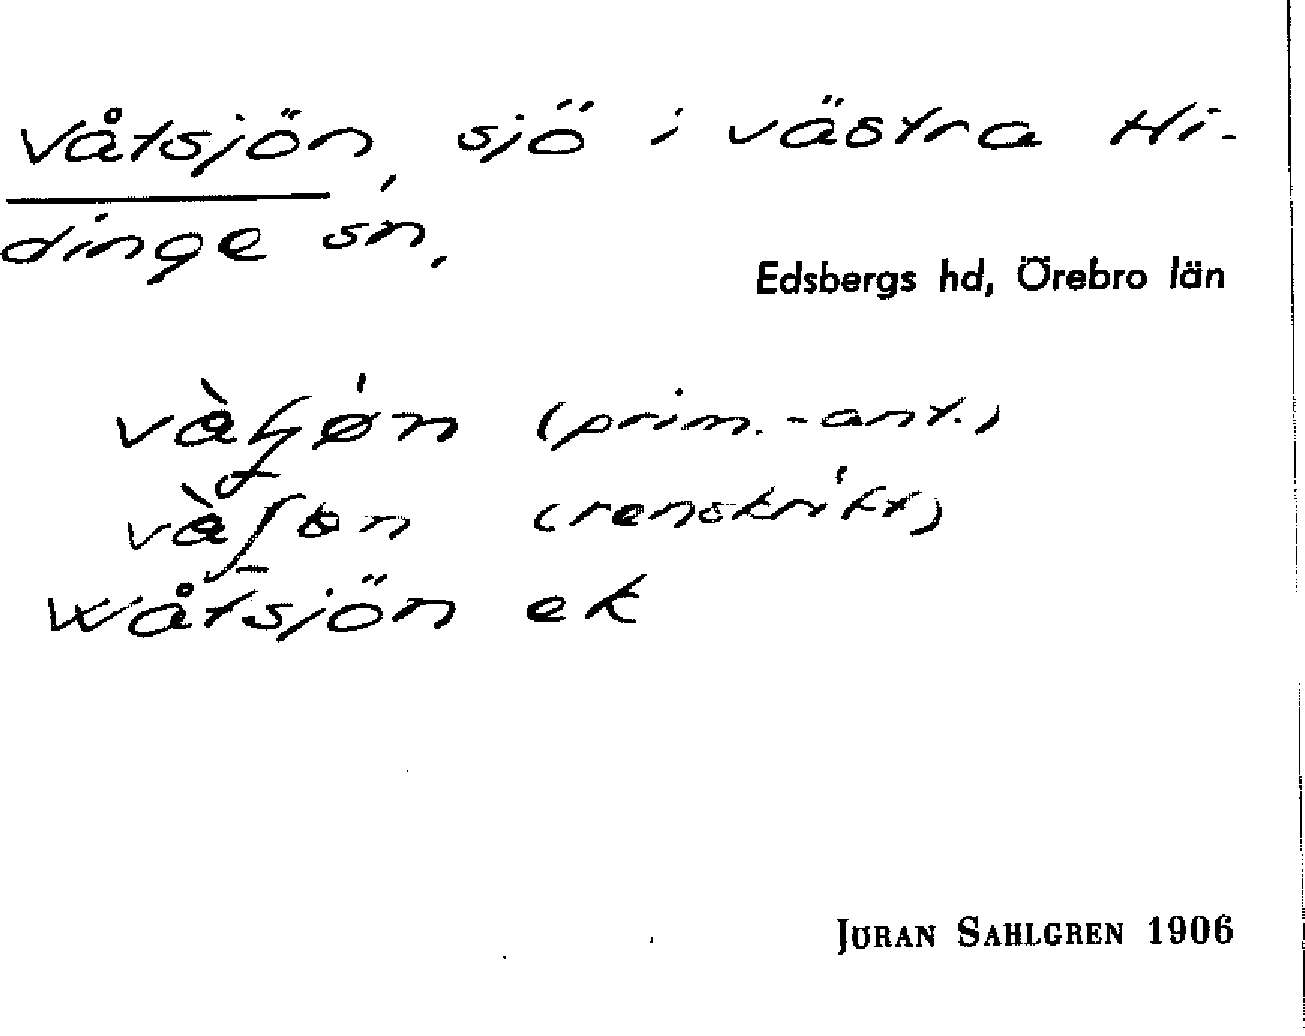 Våtsjön, sjö i västra Hi-
dinge sn.
Edsbergs hd, Örebro län
(prim.-ant.)
(renskrift)
Wåtsjön ek
JÖRAN SAHLGREN 1906